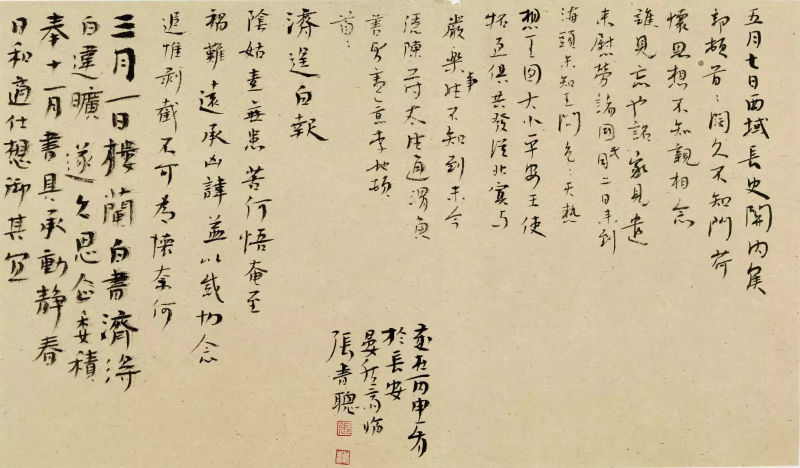 五月七日西域長史關內侯
頓首:闊久不知問
懷思想不知親相念
誰見忘也詔家見遣
來慰勞諸國月二日來到
海頭未知王問邑:天熱
想王國大小平安王使
俱共發從北虜與
嚴參事往不知到未今
太往通消息
書不盡意李柏頓
首:
濟逞白報
陰姑素無患苦何悟奄至
禍難遠承凶諱益以感切念
追惟剝截不可為懷奈何
三月一日樓蘭白書濟逞
白違曠遂久思企委積
奉十一月書具承動靜春
日和適伏想御其宜
歲在丙申
於長安
張書聰